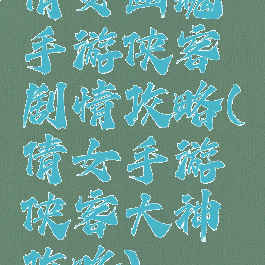 倩女幽魂
手游侠客
剧情攻略(
倩女手游
侠客大神
攻略)